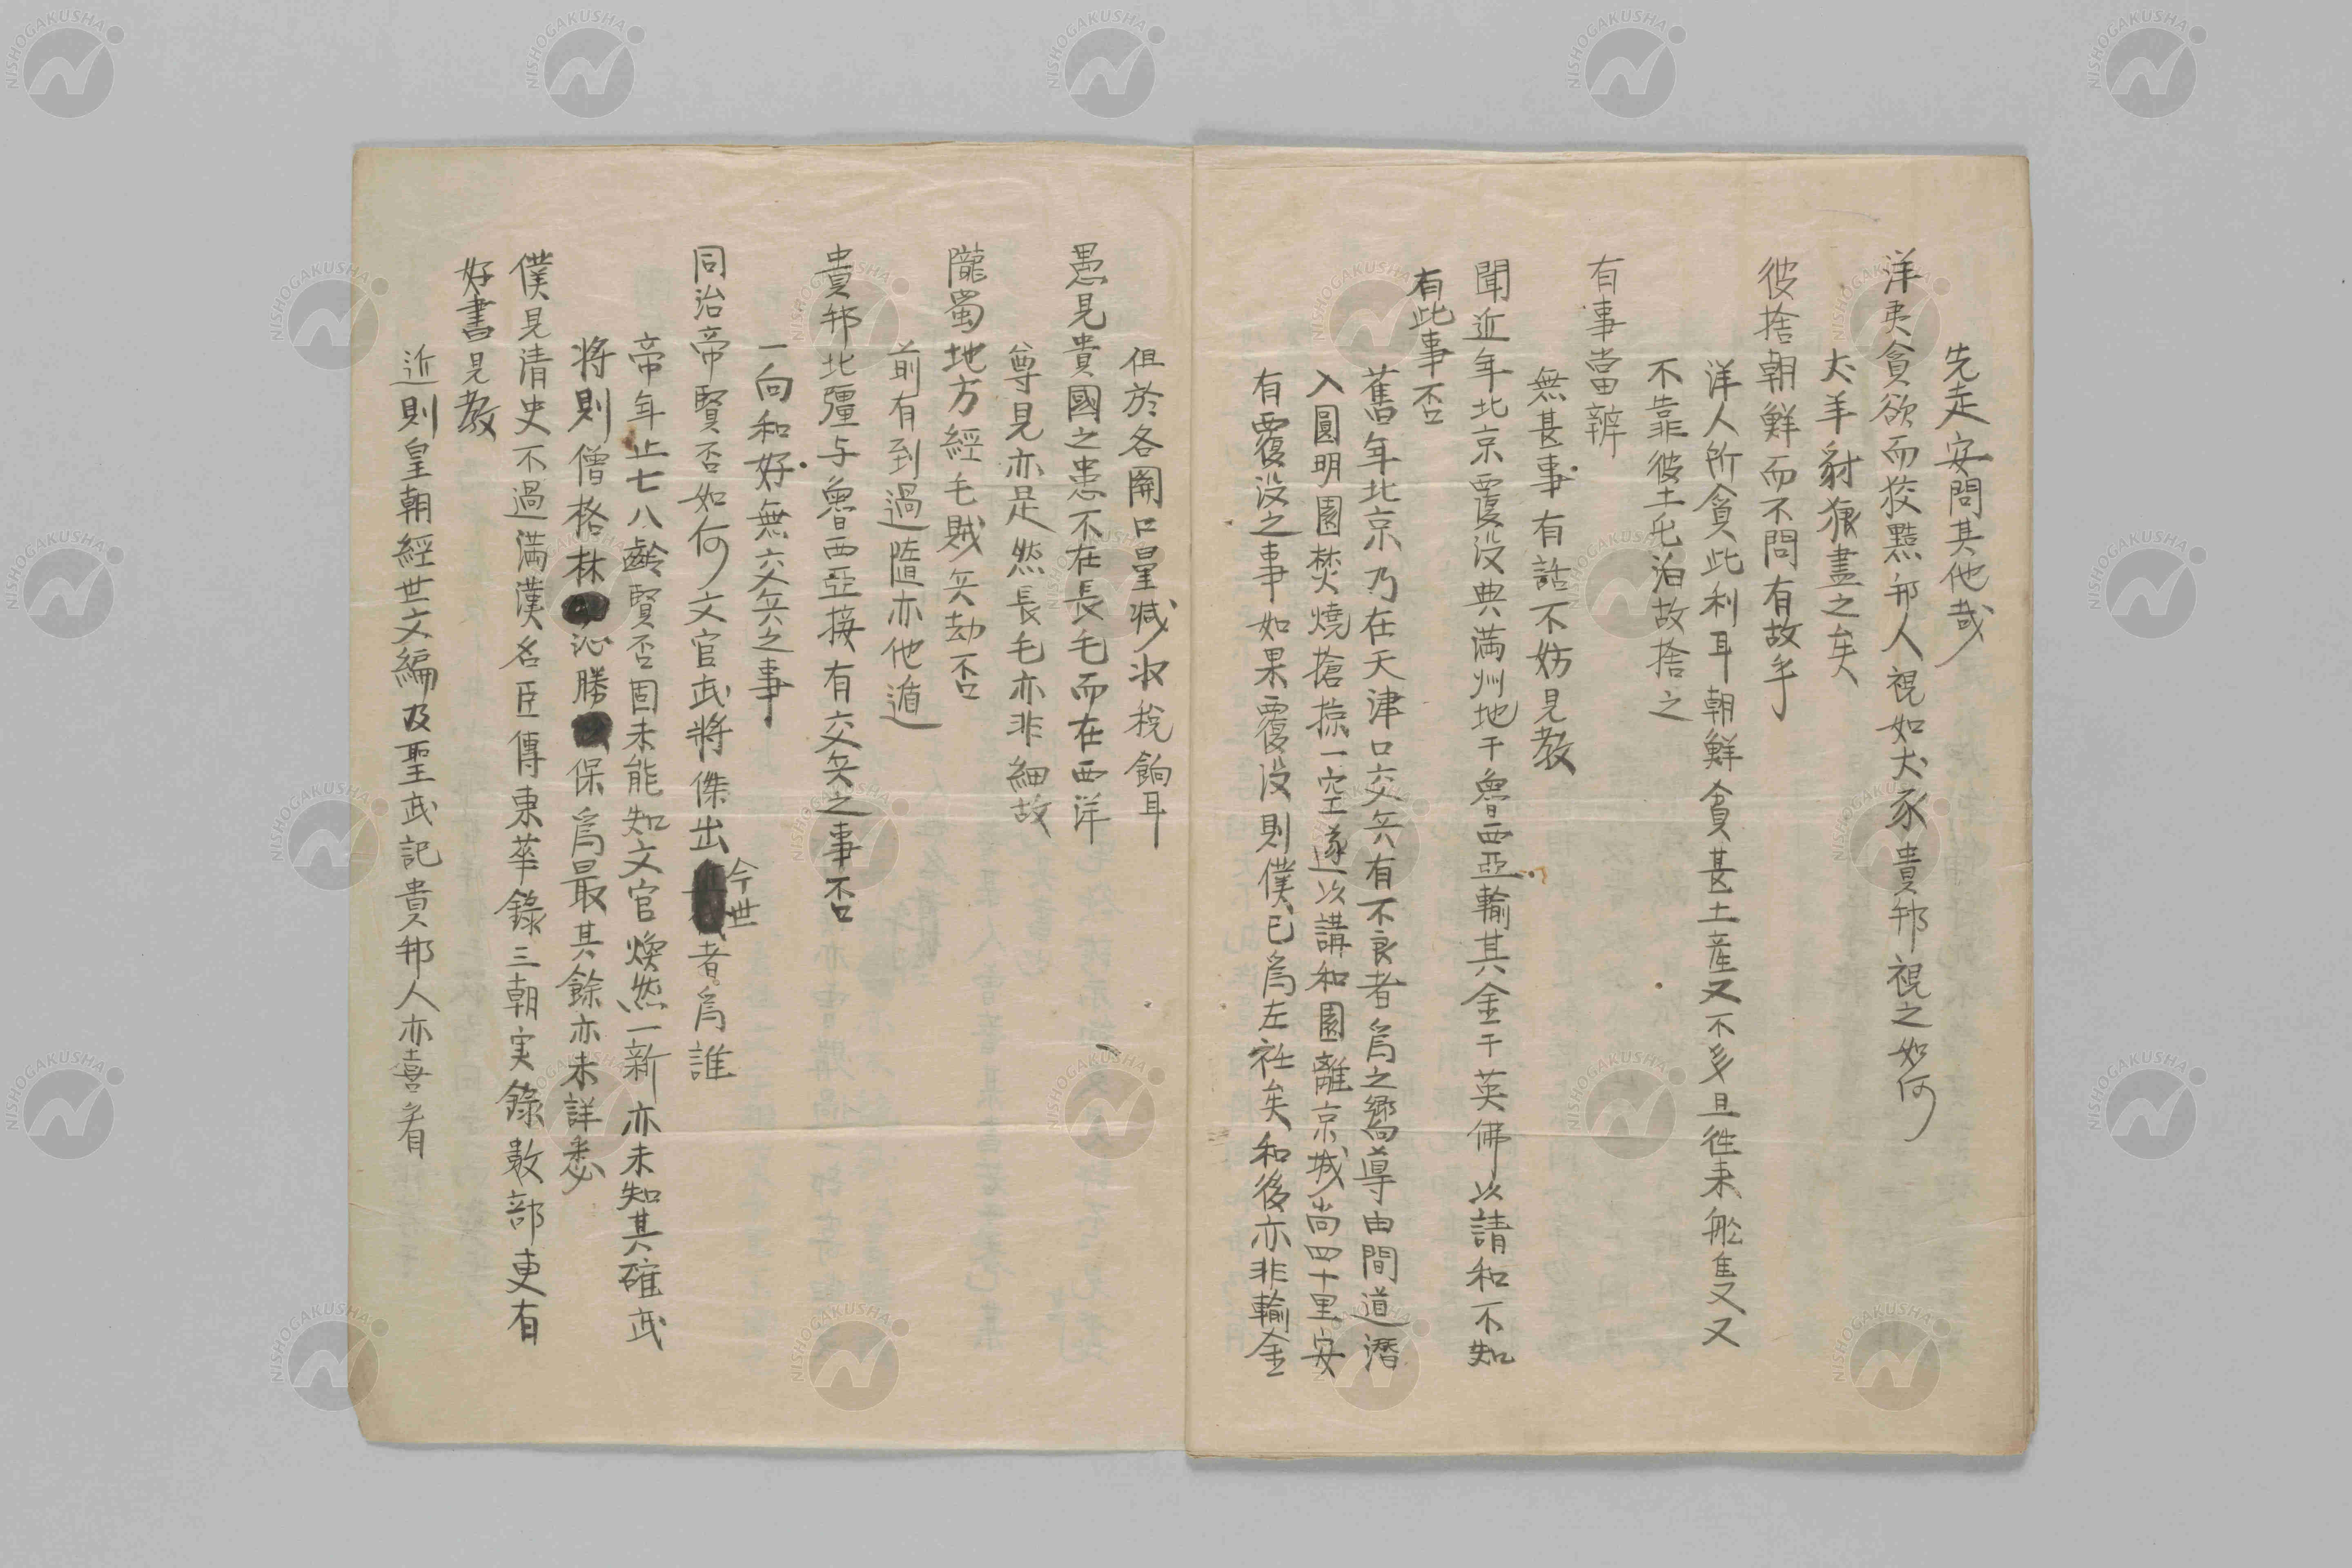 先走安問其他哉
洋夷貪欲而狡黠邦人視如犬豕貴邦視之如何
犬羊豺狼盡之矣
彼捨朝鮮而不問有故乎
洋人所貪此利耳朝鮮貧甚土産又不多且往来舩隻又
不靠彼土屯泊故捨之
有事當辨
無甚事有話不妨見教
聞近年北京覆没典満州地于魯西亞輸其金于英佛以請和不知
有此事否
舊年北京乃在天津口交兵有不良者為之嚮導由間道潛
入圓明園焚燒搶掠一空遂以講和園離京城尚四十里安
有覆没之事如果覆没則僕已為左衽矣和後亦非輸金
但於各関口量减收稅餉耳
愚見貴國之患不在長毛而在西洋
尊見亦是然長毛亦非細故
隴蜀地方經毛賊兵劫否
前有到過隨亦他遁
貴邦北彊与魯西亞接有交兵之事否
一向和好無交兵之事
同治帝賢否如何文官武将傑出今世者為誰
帝年止七八齡賢否固未能知文官煥然一新亦未知其確武
将則僧格林沁勝保為最其餘亦未詳悉
僕見清史不過満漢名臣傳東華錄三朝実錄數部更有
好書見教
近則皇朝經世文編及聖武記貴邦人亦喜看
NISHOGAKUSHA